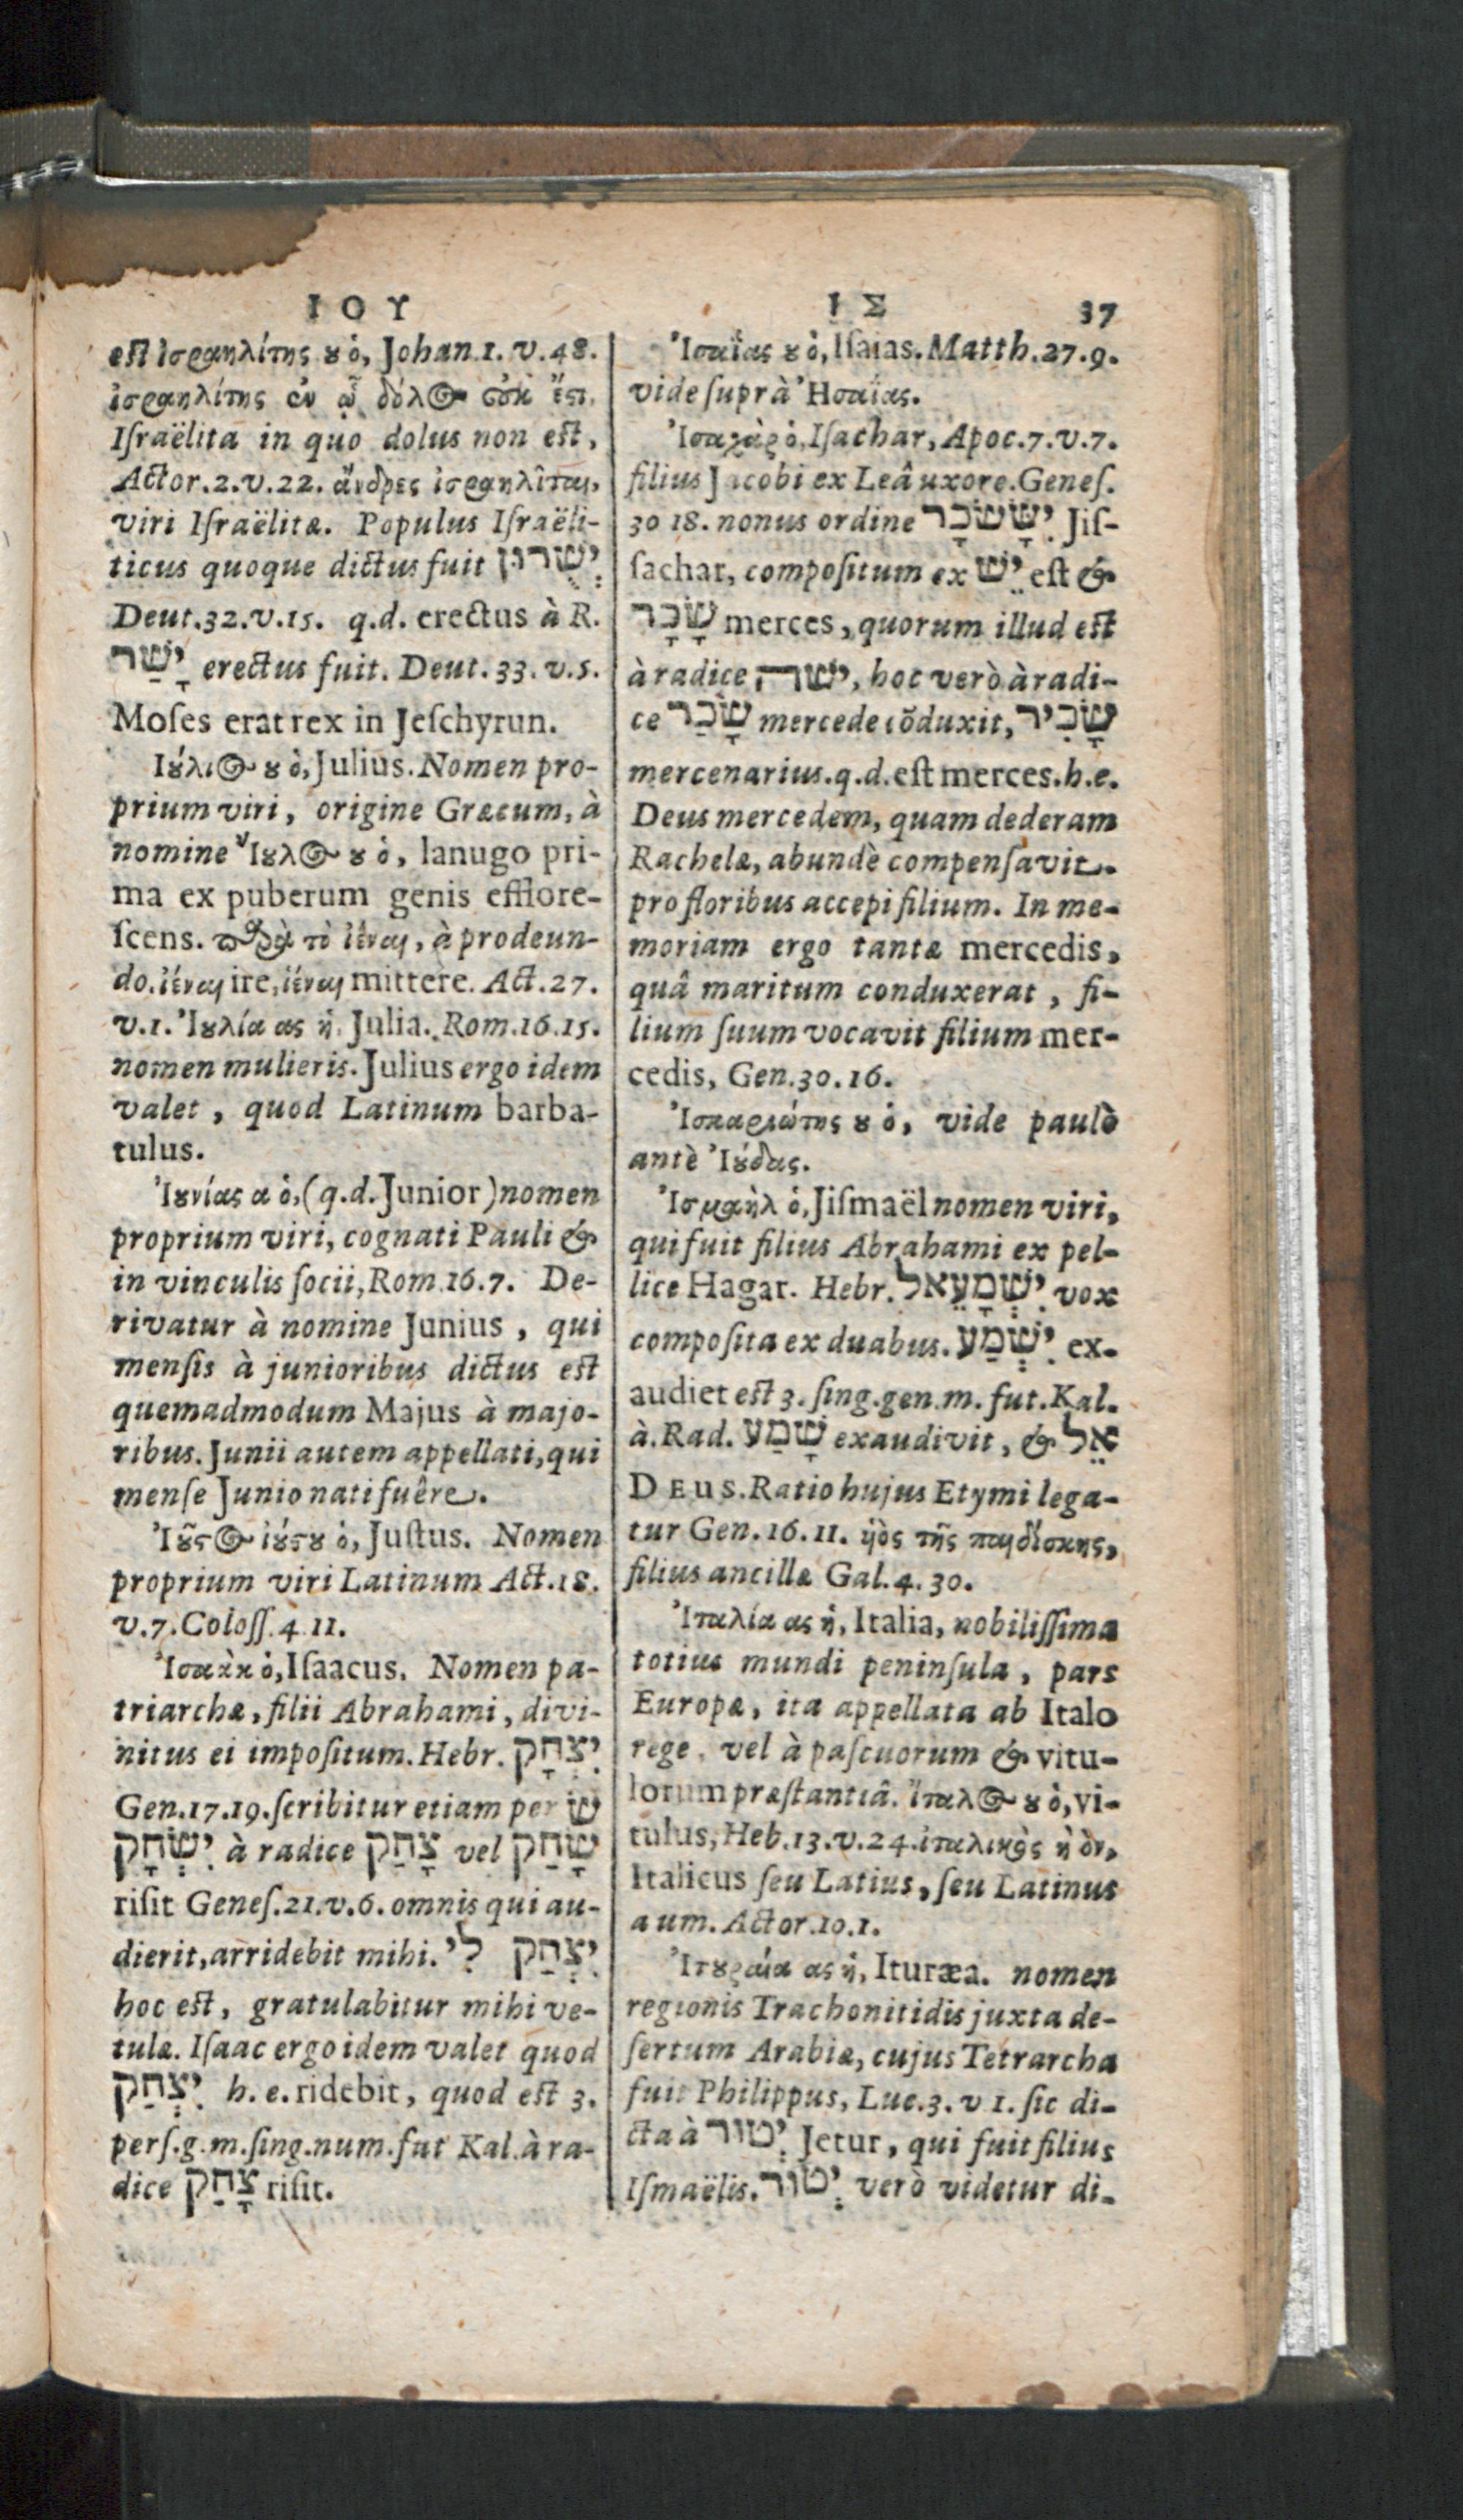 ΙΟΥ
est ἰσραηλίτης ȣ ὁ, Johan.1.v.48.
ἰσραηλίτης ἐν ᾧ δόλος οὐκ ἔστι.
Iſraëlita in quo dolus non est,
Actor.2.v.22. ἄνδρες ἰσραηλῖται,
viri Iſraëlitæ. Populus Iſraëli-
ticus quoque dictus fuit יְשֻׁרוּן
Deut.32.v.15. q.d. erectus à R.
יָשַׁר erectus fuit. Deut.33.v.5.
Moſes erat rex in Jeſchyrun.
Ιȣ́λιος ȣ ὁ, Julius. Nomen pro-
prium viri, origine Græcum, à
nomine Ἴȣλος ȣ ὁ, lanugo pri-
ma ex puberum genis efflore-
ſcens. παρὰ τὸ ἰέναι, à prodeun-
do. ἰέναι ire, ἱέναι mittere. Act.27.
v.1. Ἰȣλία ας ἡ. Julia. Rom.16.15.
nomen mulieris. Julius ergo idem
valet, quod Latinum barba-
tulus.
Ἰȣνίας α ὁ, (q.d. Junior) nomen
proprium viri, cognati Pauli &
in vinculis ſocii, Rom.16.7. De-
rivatur à nomine Junius, qui
menſis à junioribus dictus est
quemadmodum Majus à majo-
ribus. Junii autem appellati, qui
menſe Junio nati fuêre.
Ἰȣ͂στος ἰȣ́στȣ ὁ, Juſtus. Nomen
proprium viri Latinum Act.18.
v.7. Coloſſ.4.11.
Ἰσαὰκ ὁ, Iſaacus. Nomen pa-
triarchæ, filii Abrahami, divi-
nitus ei impoſitum. Hebr. יִצְחָק
Gen.17.19. ſcribitur etiam per שׂ
יִשְׂחָק à radice צָחַק vel שָׂחַק
riſit Geneſ.21.v.6. omnis qui au-
dierit, arridebit mihi. יִצְחַק לִי
hoc est, gratulabitur mihi ve-
tulæ. Iſaac ergo idem valet quod
יִצְחַק h.e. ridebit, quod est 3.
perſ.g.m.ſing.num.fut Kal. à ra-
dice צָחַק riſit.
ΙΣ 37
Ἰσαΐας ȣ ὁ, Iſaias. Matth.27.9.
vide ſuprà Ἡσαΐας.
Ἰσαχὰρ ὁ, Iſachar, Apoc.7.v.7.
filius Jacobi ex Leâ uxore. Geneſ.
30 18. nonus ordine יִשָּׂשׂכָר Jiſ-
ſachar, compoſitum ex יֵשׁ est &
שָׂכָר merces, quorum illud est
à radice ישה, hoc verò à radi-
ce שָׂכַר mercede cōduxit, שָׂכִיר
mercenarius. q.d. est merces. h.e.
Deus mercedem, quam dederam
Rachelæ, abundè compenſavit.
pro floribus accepi filium. In me-
moriam ergo tantæ mercedis,
quâ maritum conduxerat, fi-
lium ſuum vocavit filium mer-
cedis, Gen.30.16.
Ἰσκαριώτης ȣ ὁ, vide paulò
antè Ἰȣ́δας.
Ἰσμαὴλ ὁ, Jiſmaël nomen viri,
qui fuit filius Abrahami ex pel-
lice Hagar. Hebr. יִשְׁמָעֵאל vox
compoſita ex duabus. יִשְׁמַע ex-
audiet est 3.ſing.gen.m.fut.Kal.
à.Rad. שָׁמַע exaudivit, & אֵל
DEUS. Ratio hujus Etymi lega-
tur Gen.16.11. ὑὸς τῆς παιδίσκης,
filius ancillæ Gal.4.30.
Ἰταλία ας ἡ, Italia, nobiliſſima
totius mundi peninſula, pars
Europæ, ita appellata ab Italo
rege, vel à paſcuorum & vitu-
lorum præſtantiâ. Ἴταλος ȣ ὁ, vi-
tulus, Heb.13.v.24. ἰταλικὸς ἡ ὸν,
Italicus ſeu Latius, ſeu Latinus
a um. Actor.10.1.
Ἰτȣραία ας ἡ, Ituræa. nomen
regionis Trachonitidis juxta de-
ſertum Arabiæ, cujus Tetrarcha
fuit Philippus, Luc.3.v 1. ſic di-
cta à יְטוּר Jetur, qui fuit filius
Iſmaëlis. יְטוּר verò videtur di-